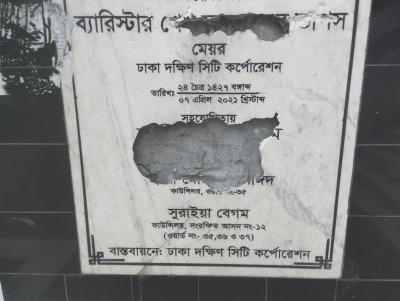 ব্যারিস্টার
মেয়র
ঢাকা দক্ষিণ সিটি কর্পোরেশন
তারিখঃ ২৪ চৈত্র ১৪২৭ বঙ্গাব্দ
০৭ এপ্রিল ২০২১ খ্রিস্টাব্দ
সহযোগিতায়
কাউন্সিলর, ওয়ার্ড নং-৩৫
সুরাইয়া বেগম
কাউন্সিলর, সংরক্ষিত আসন নং-১২
(ওয়ার্ড নং- ৩৫,৩৬ ও ৩৭)
বাস্তবায়নে: ঢাকা দক্ষিণ সিটি কর্পোরেশন